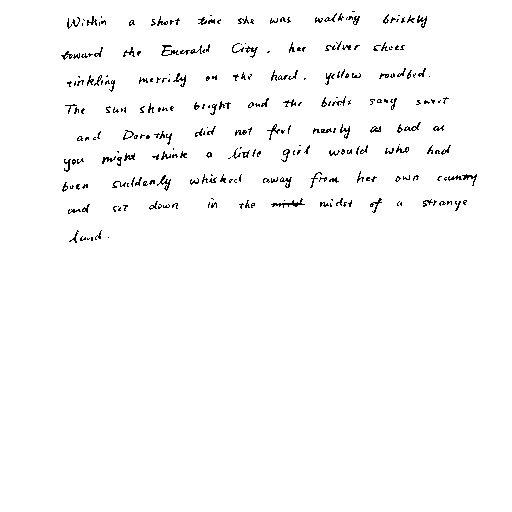 Within a short time she was walking briskly
toward the Emerald City, her silver shoes
tinkling merrily on the hard, yellow roadbed.
The sun shone bright and the birds sang sweet
and Dorothy did not feel nearly as bad as
you might think a little girl would who had
been suddenly whisked away from her own country
and set down in the midst of a strange
land.